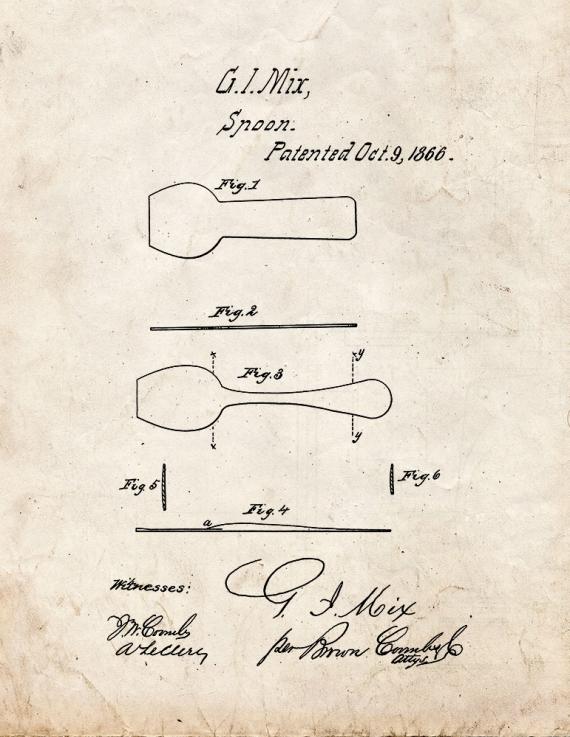 G. I. Mix,
Spoon.
Patented Oct. 9, 1866.
Fig. 1
Fig. 2
x
y
Fig. 3
y
x
Fig. 5
Fig. 6
a
Fig. 4
Witnesses:
G I Mix
per Brown Coombs & Co
Attys